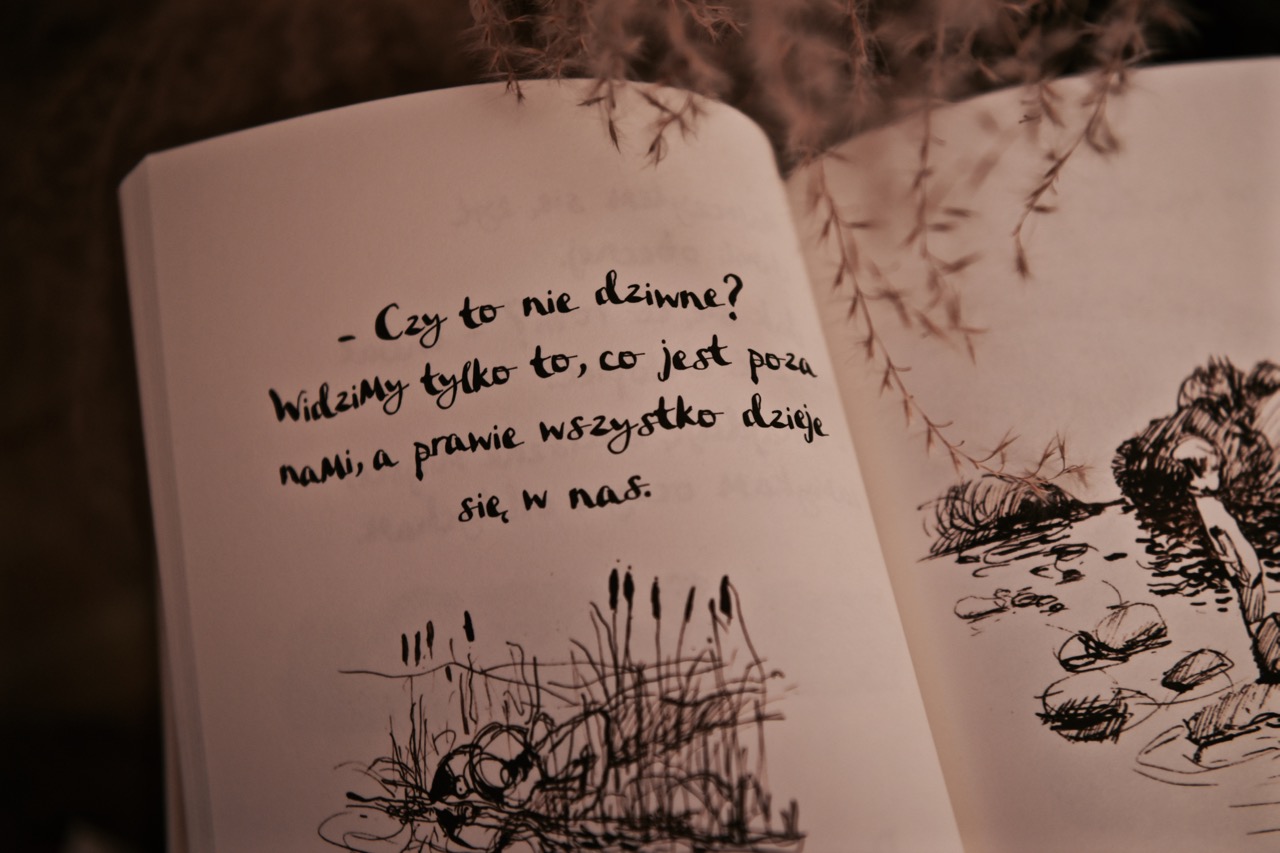 - Czy to nie dziwne?
Widzimy tylko to, co jest poza
nami, a prawie wszystko dzieje
się w nas.